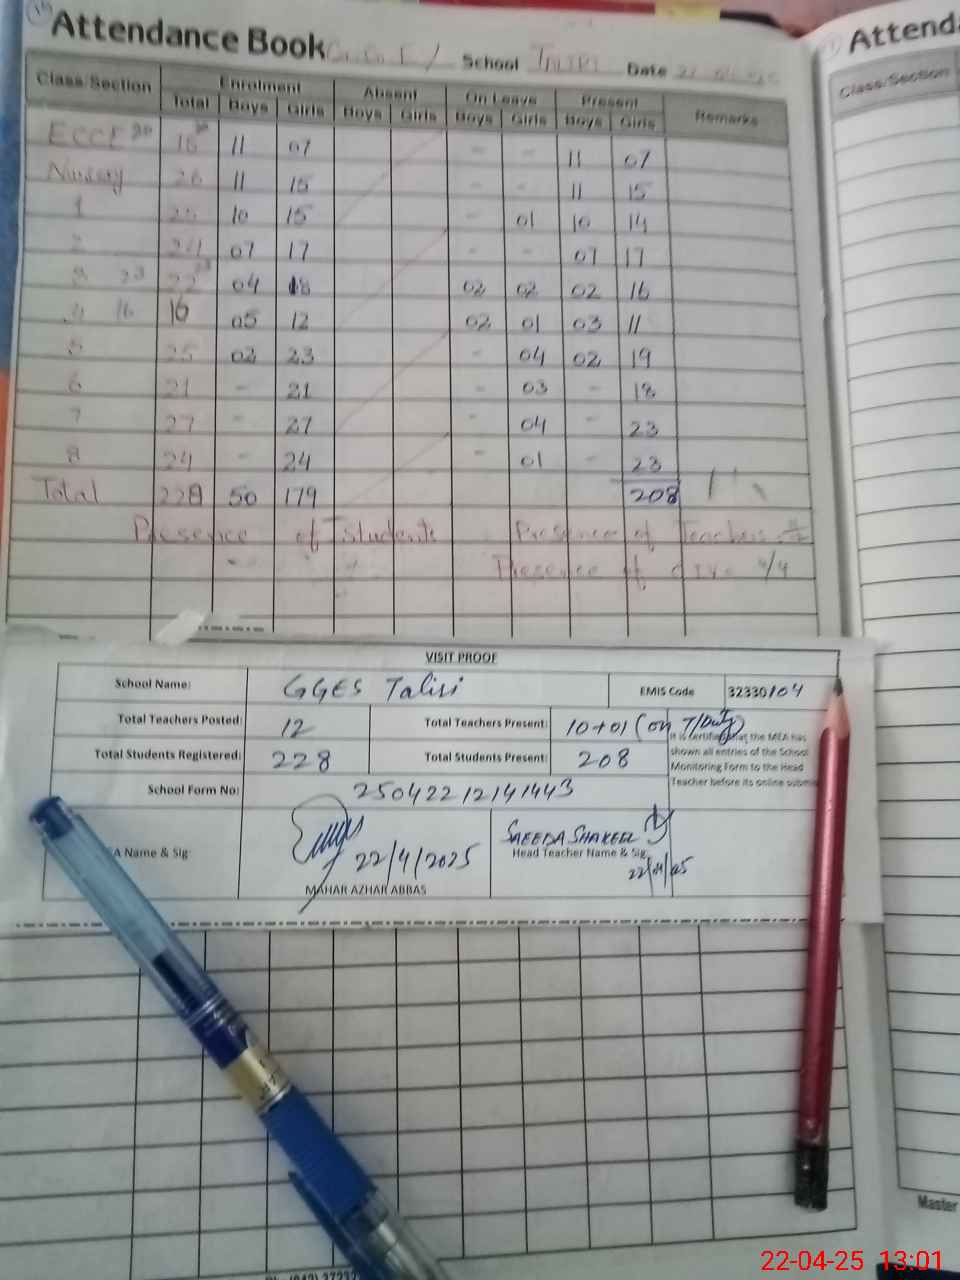 Attendance Book School Date
Attend
Class/Section Enrolment Absent On Leave Present Remarks
Total Boys Girls Boys Girls Boys Girls Boys Girls
Class/Section
ECCE 11 07 - - 11 07
Nursery 26 11 15 - - 11 15
1 25 10 15 - 01 10 14
2 24 07 17 - - 07 17
3 23 04 18 02 02 02 16
4 16 16 05 12 02 01 03 11
5 25 02 23 - 04 02 19
6 21 - 21 - 03 - 18
7 27 - 27 - 04 - 23
8 24 - 24 - 01 - 23
Total 228 50 179 208
Presence of Students Presence of Teachers
Presence of 4/4
VISIT PROOF
School Name: GGES Talisi EMIS Code 32330104
Total Teachers Posted: 12 Total Teachers Present: 10+01 (on T/Duty)
Total Students Registered: 228 Total Students Present: 208
It is certified that the MEA has
shown all entries of the School
Monitoring Form to the Head
Teacher before its online submi
School Form No: 25042212141443
A Name & Sig 22/4/2025
MAHAR AZHAR ABBAS
SAEEDA SHAKEEL
Head Teacher Name & Sig:
22/04/25
Master
22-04-25 13:01